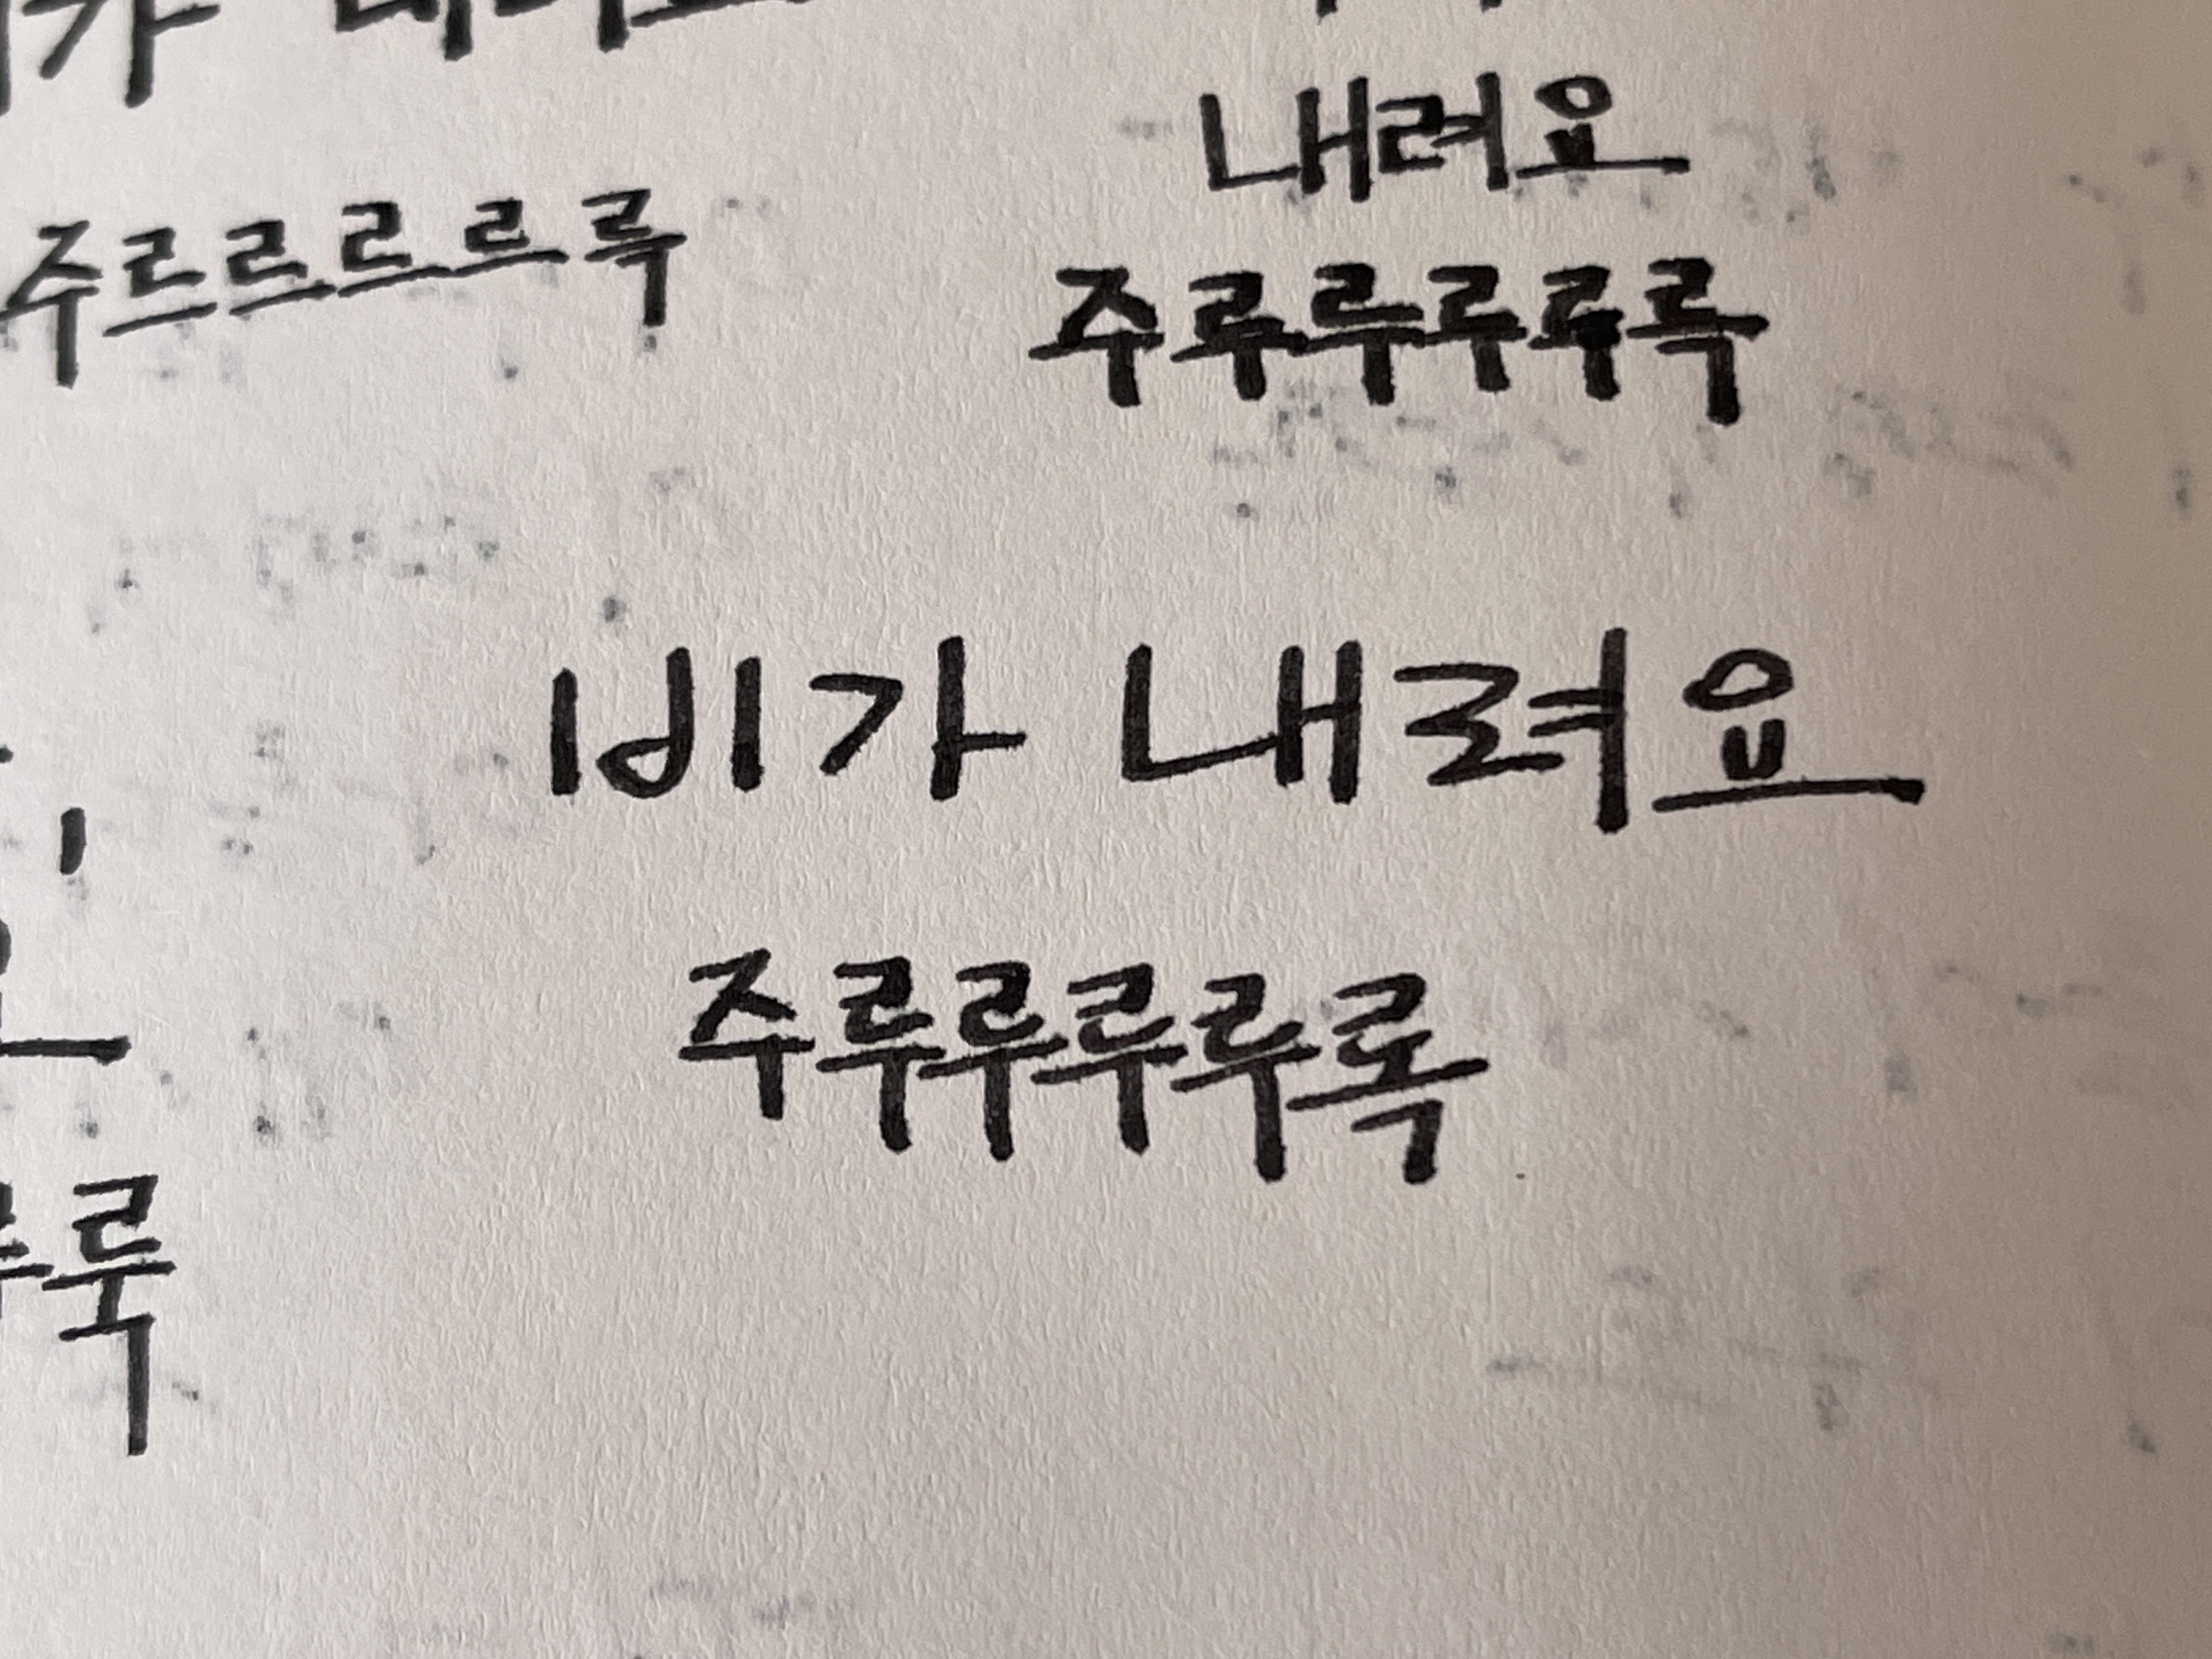 가 내려요
주르르르르륵
내려요
주루루루루륵
비가 내려요
주루루루루록
룩